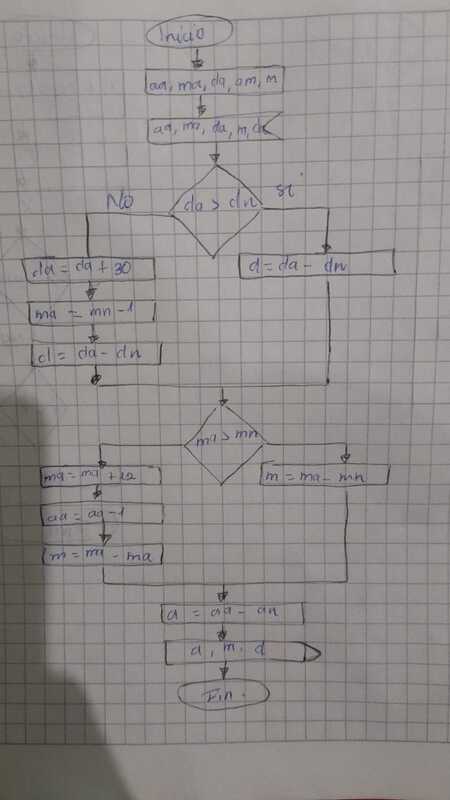 Inicio
aa, ma, da, am, m
aa, ma, da, m, d
No
da > dn
si
da = da + 30
d = da - dn
ma = mn - 1
d = da - dn
ma > mn
ma = ma + 12
m = ma - mn
aa = aa - 1
m = ma - ma
a = aa - an
a, m, d
Fin.